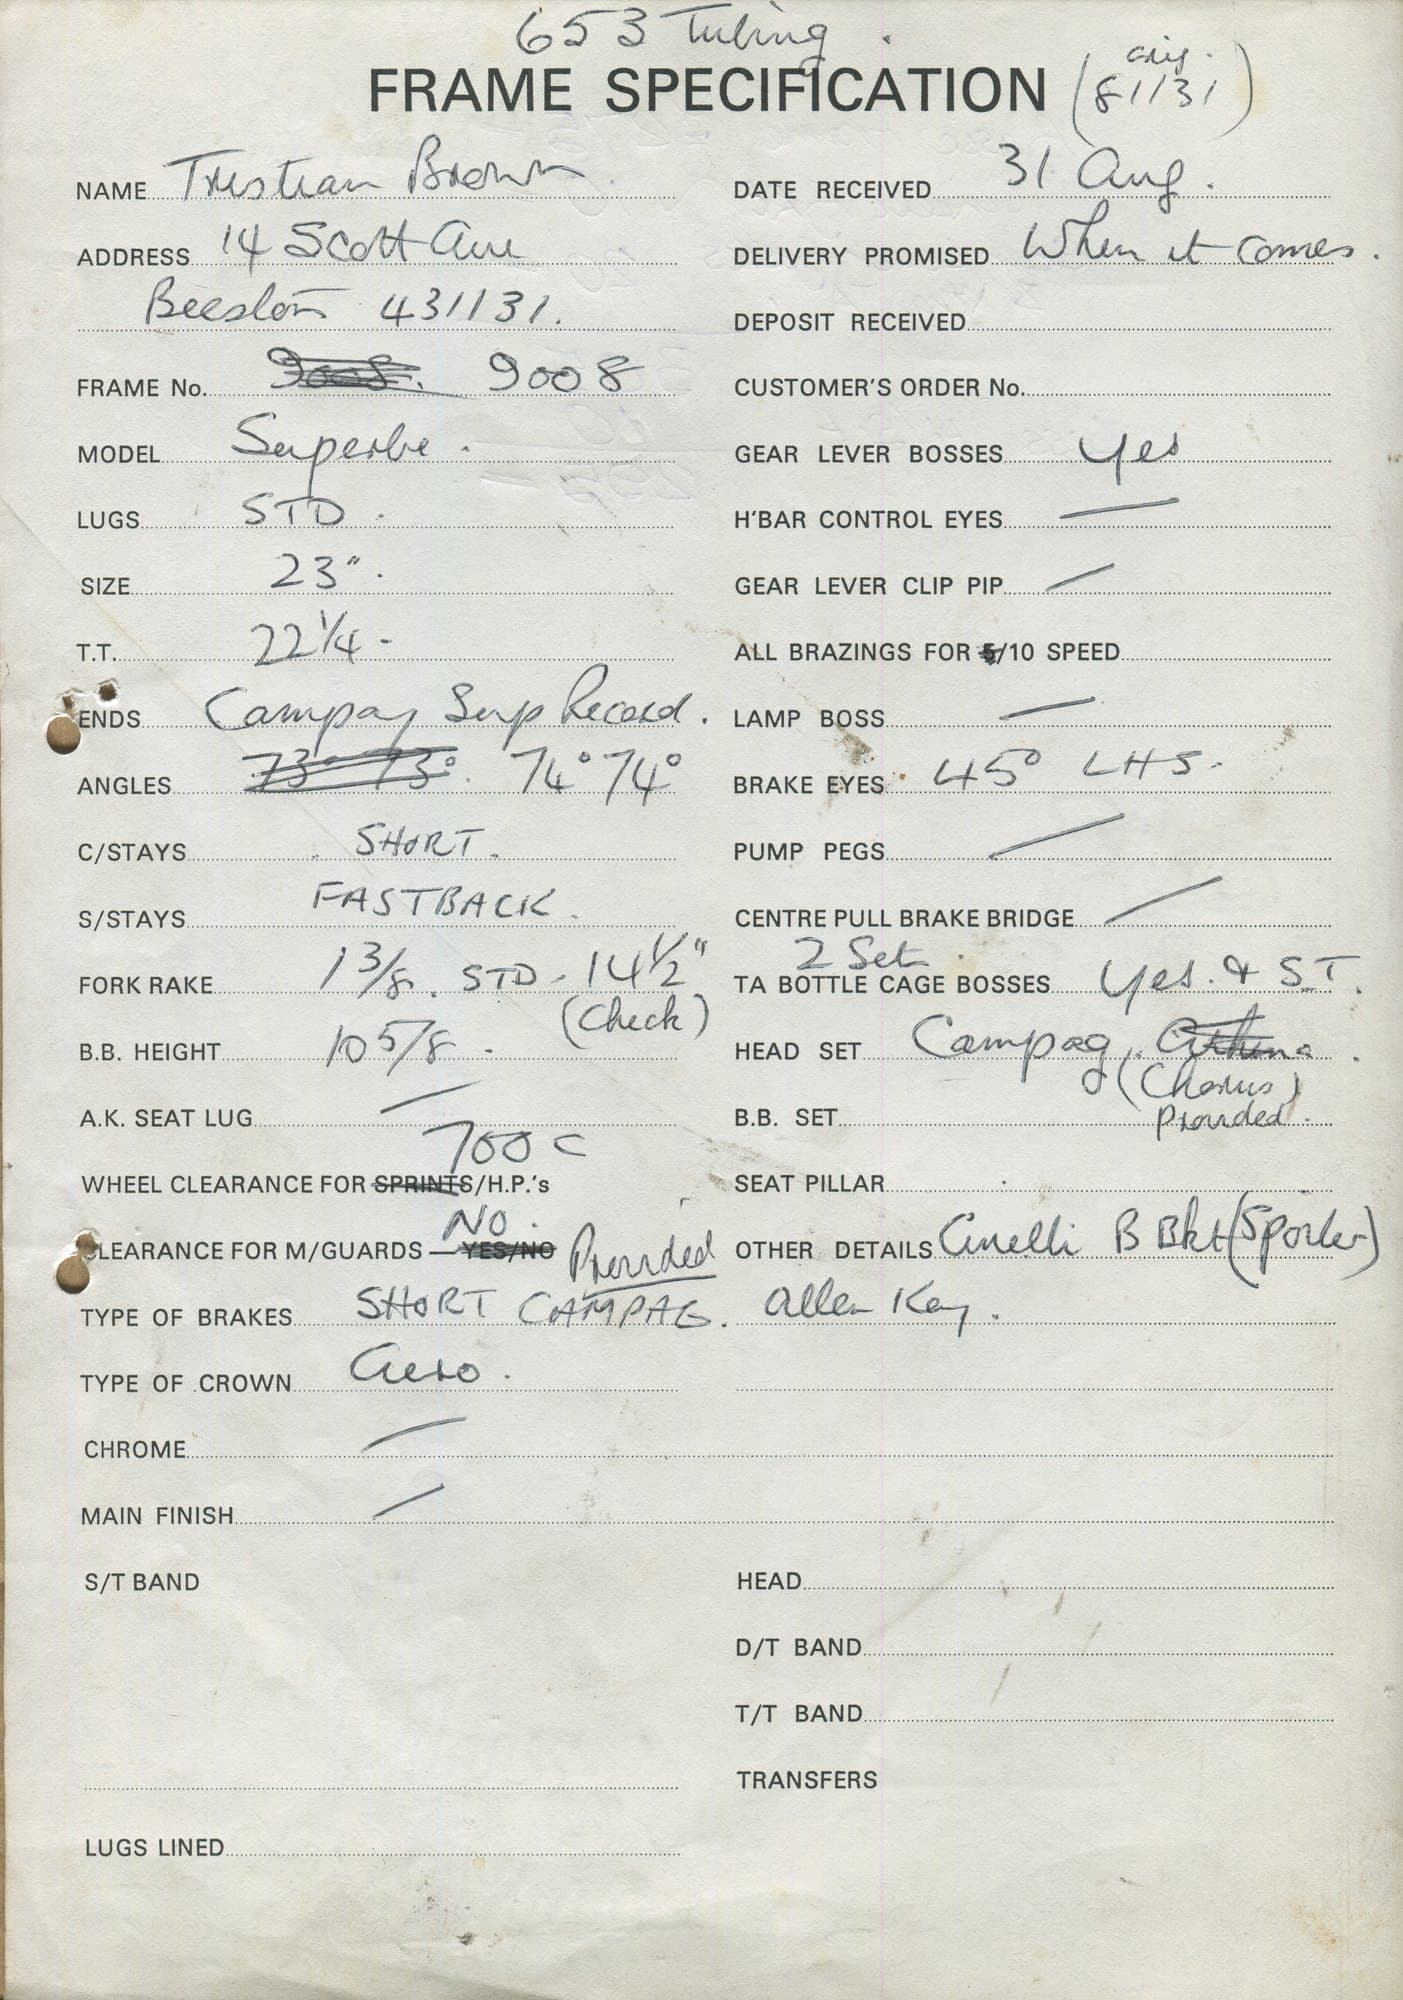 653 Tubing.
FRAME SPECIFICATION (orig. 81131)
NAME Tristian Brown
ADDRESS 14 Scott Ave
Beeston 431131.
FRAME No. 9008. 9008
MODEL Superbe.
LUGS STD.
SIZE 23".
T.T. 22 1/4 -
ENDS Campag Sup Record.
ANGLES 73° 73°. 74° 74°
C/STAYS SHORT.
S/STAYS FASTBACK.
FORK RAKE 1 3/8. STD - 14 1/2" (Check)
B.B. HEIGHT 10 5/8.
A.K. SEAT LUG —
700 C
WHEEL CLEARANCE FOR SPRINTS/H.P.'s
NO.
CLEARANCE FOR M/GUARDS — YES/NO
Provided
TYPE OF BRAKES SHORT CAMPAG.
TYPE OF CROWN Aero.
CHROME —
MAIN FINISH —
S/T BAND
LUGS LINED
DATE RECEIVED 31 Aug.
DELIVERY PROMISED When it comes.
DEPOSIT RECEIVED
CUSTOMER'S ORDER No.
GEAR LEVER BOSSES Yes
H'BAR CONTROL EYES —
GEAR LEVER CLIP PIP —
ALL BRAZINGS FOR 5/10 SPEED
LAMP BOSS —
BRAKE EYES 45° LHS.
PUMP PEGS —
CENTRE PULL BRAKE BRIDGE —
2 Sets.
TA BOTTLE CAGE BOSSES Yes. & ST.
HEAD SET Campag. Athena.
(Chorus)
B.B. SET Provided.
SEAT PILLAR
OTHER DETAILS Cinelli B Bkt (Spoiler)
Allen Key.
HEAD
D/T BAND
T/T BAND
TRANSFERS